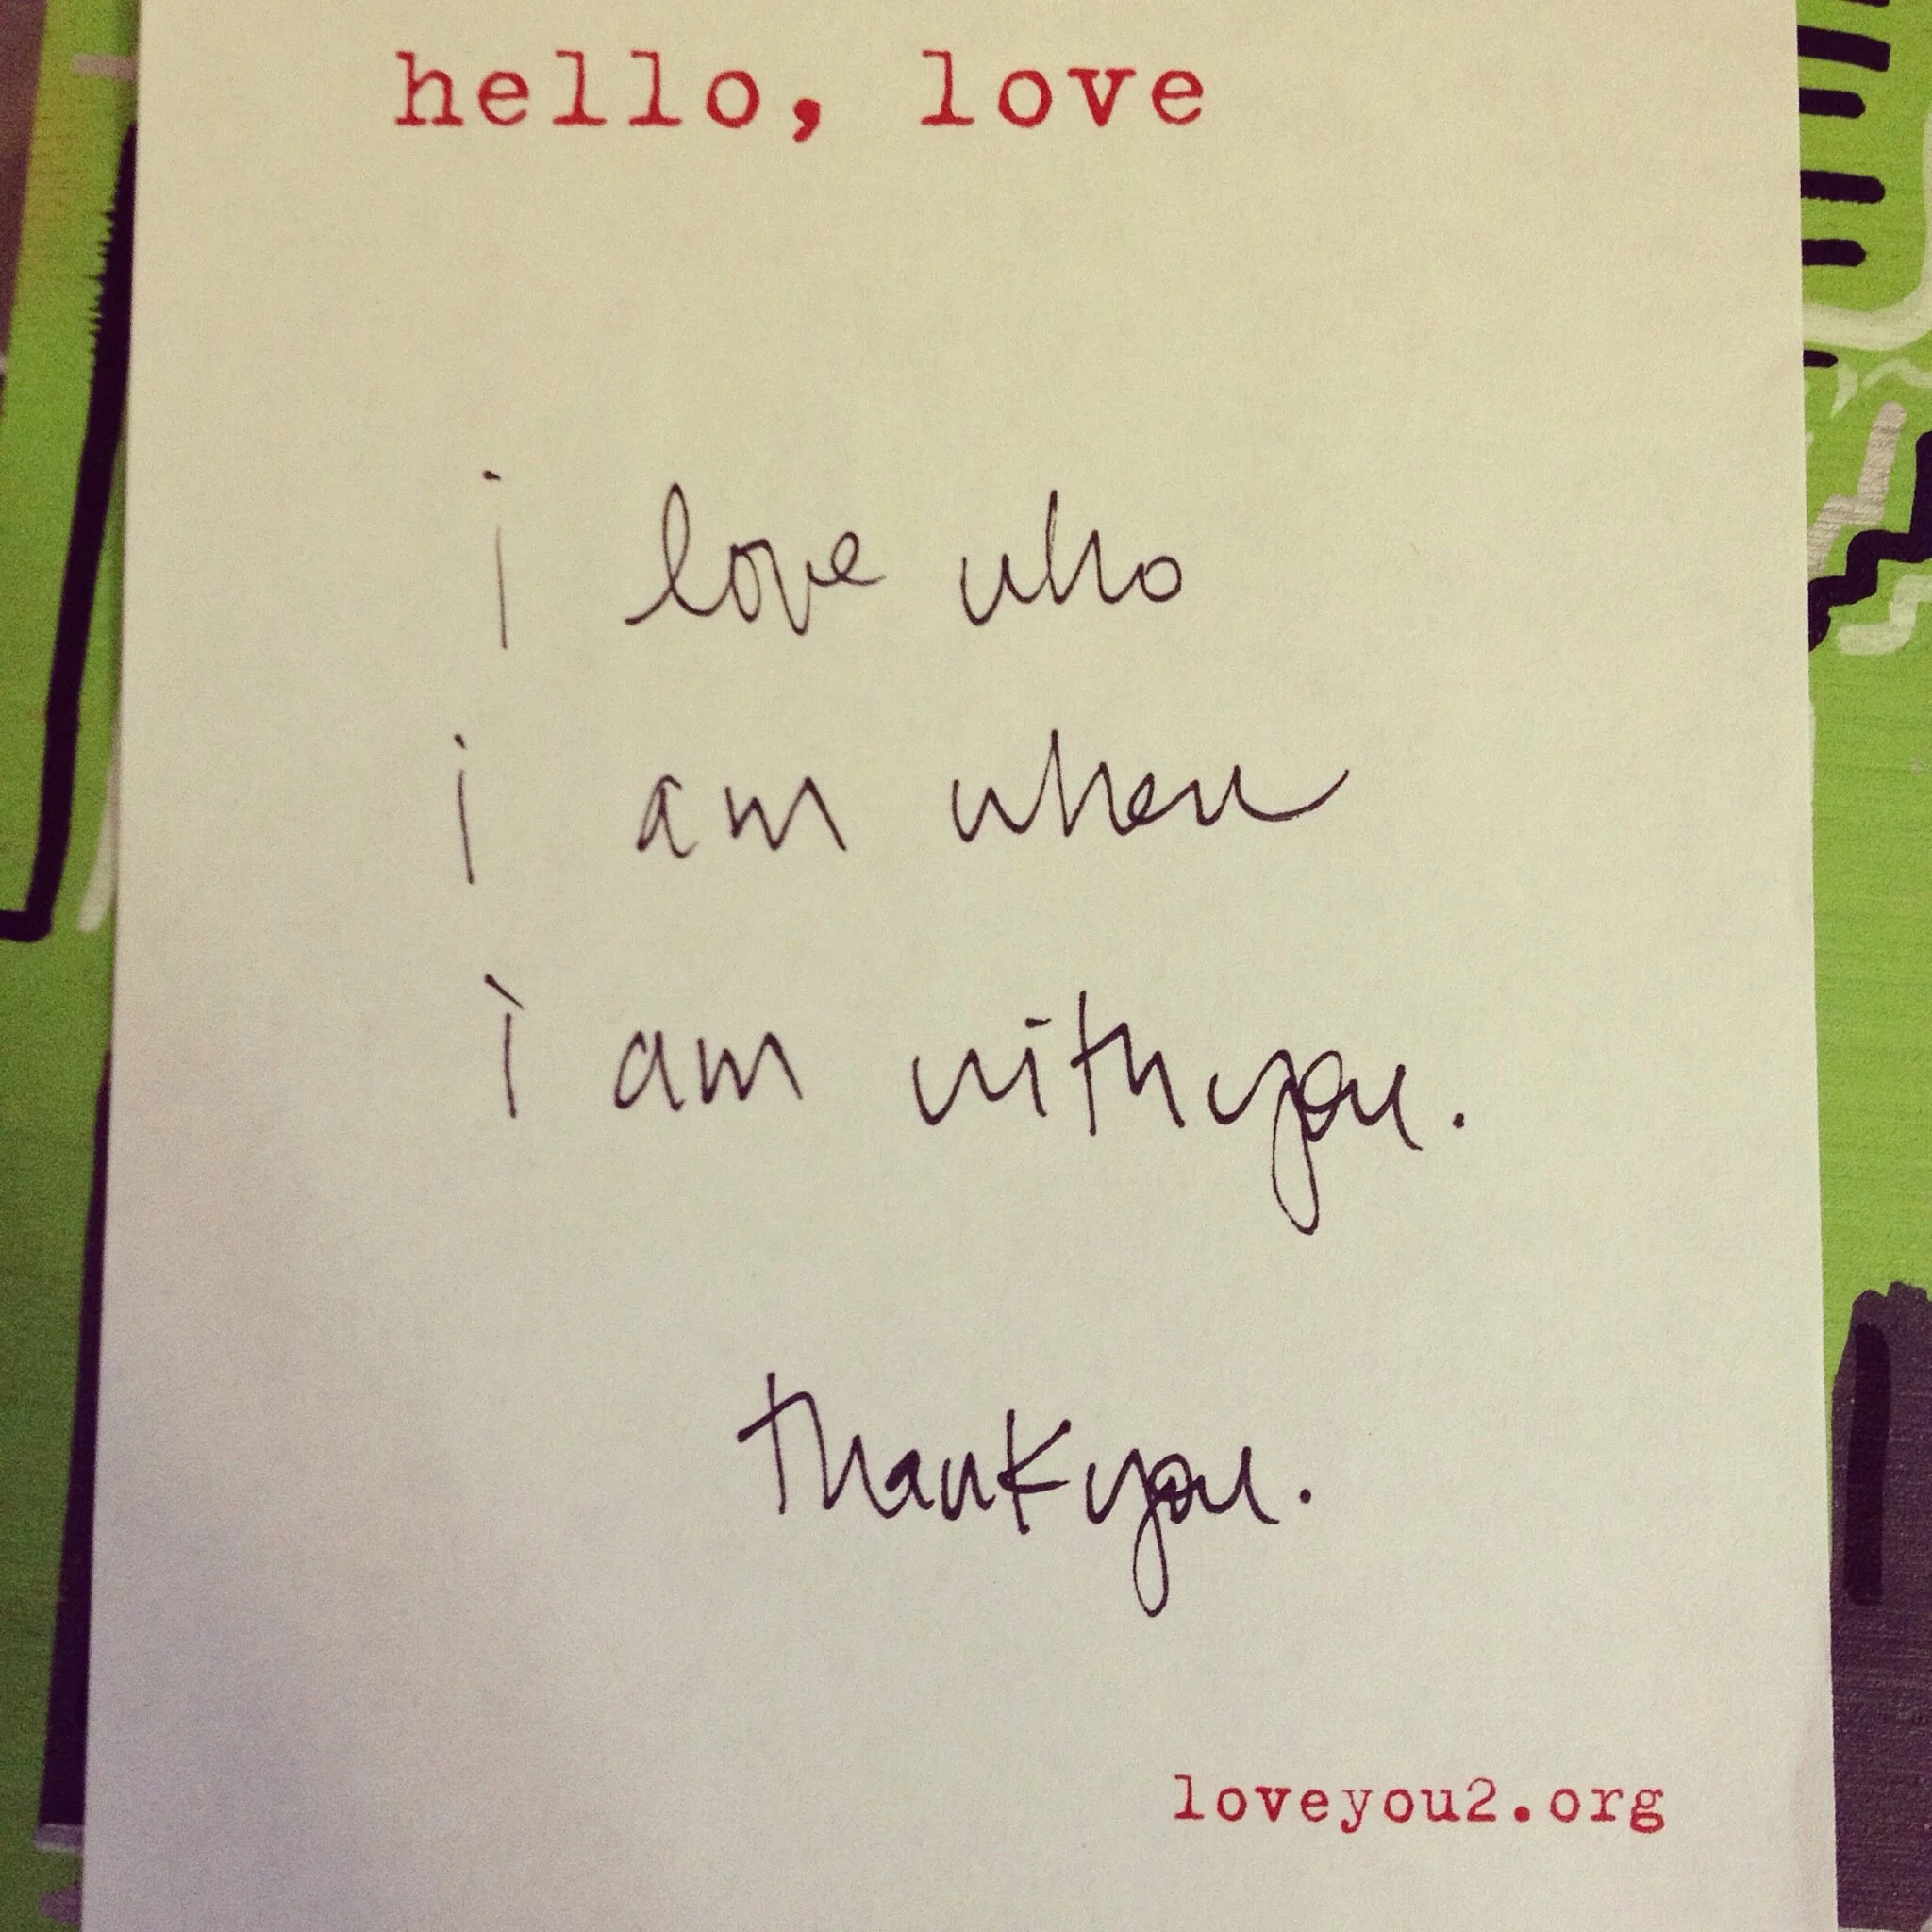 hello, love
i love who
i am when
i am with you.
thank you.
loveyou2.org